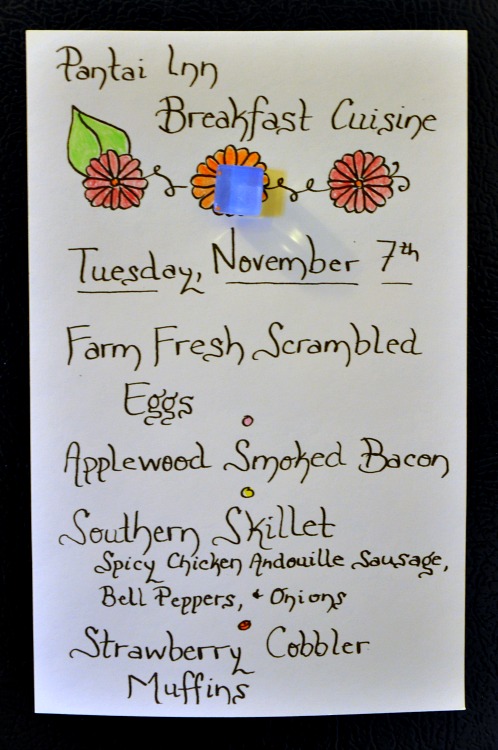 Pantai Inn
Breakfast Cuisine
Tuesday, November 7th
Farm Fresh Scrambled
Eggs
Applewood Smoked Bacon
Southern Skillet
Spicy Chicken Andouille Sausage,
Bell Peppers, & Onions
Strawberry Cobbler
Muffins